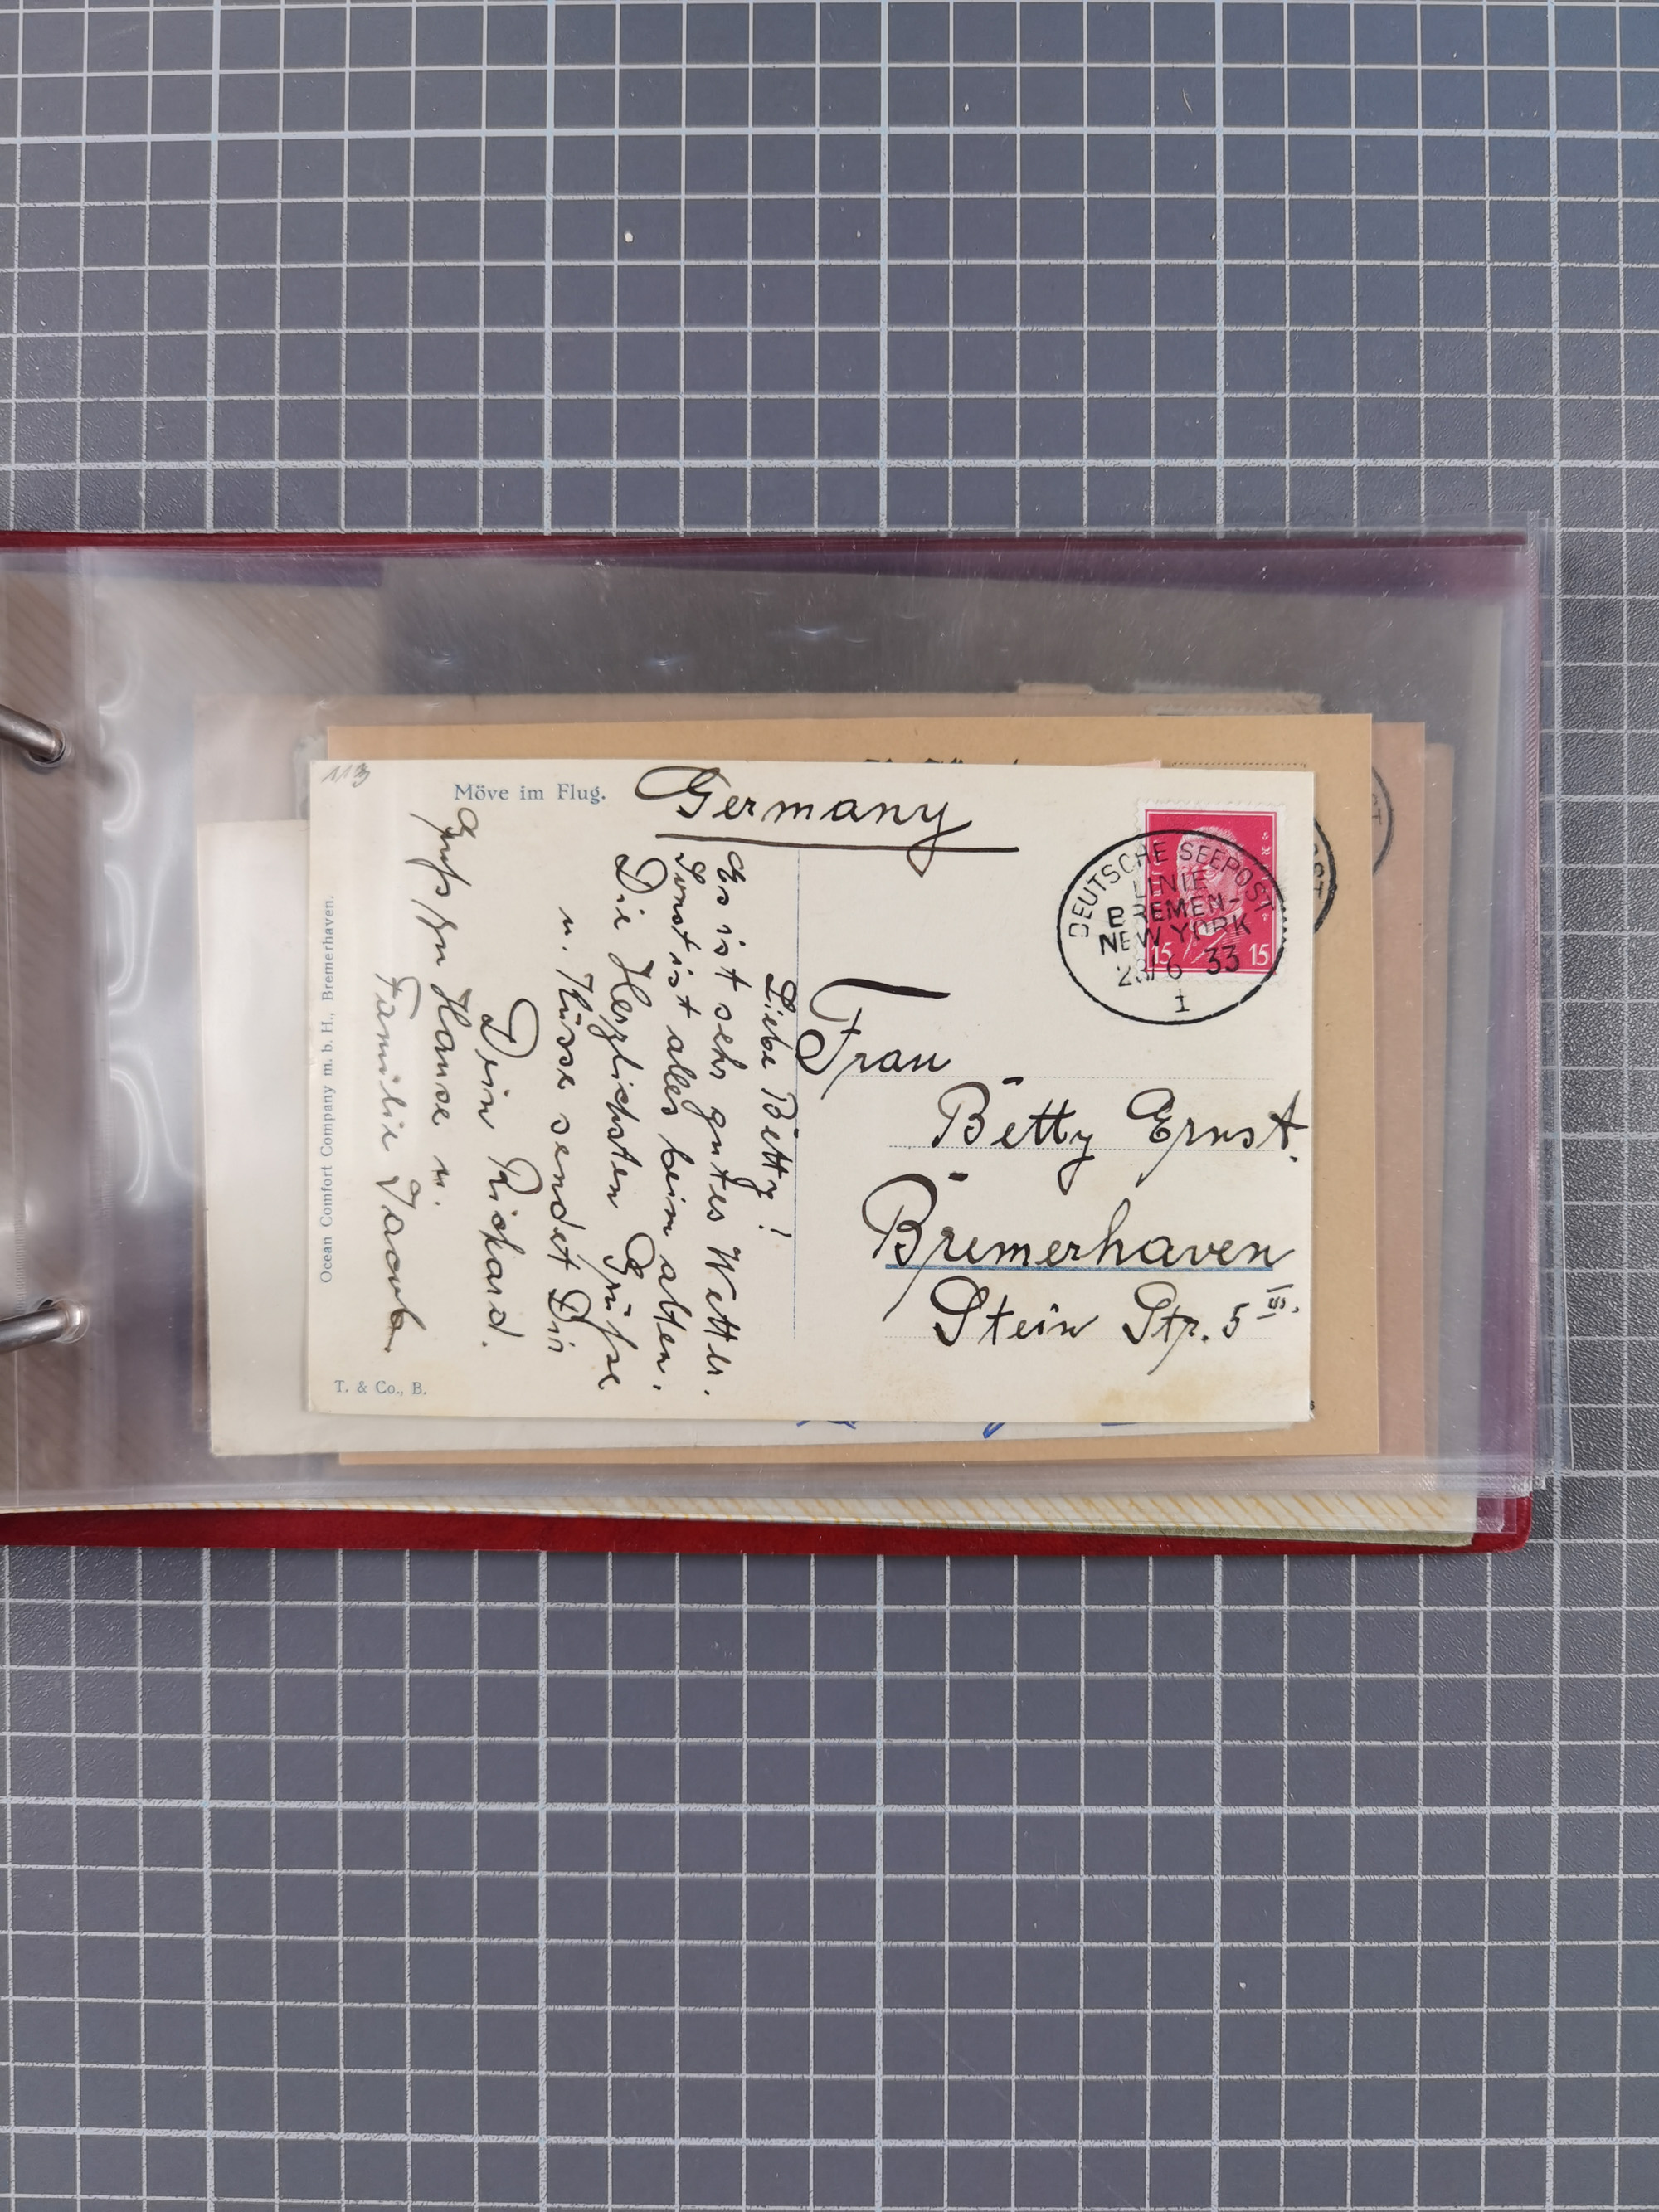 113
Möve im Flug.
Germany
DEUTSCHE SEEPOST
LINIE
BREMEN-
NEW YORK
6 33
1
15 15
Liebe Betty!
Es ist sehr gutes Wetter.
Sonst ist alles beim alten.
Die Herzlichsten Grüße
u. Küsse sendet Dir
Dein Richard.
Gruß zu Hause u.
Familie
Frau
Betty Ernst.
Bremerhaven
Stein Str. 5 III.
Ocean Comfort Company m. b. H., Bremerhaven.
T. & Co., B.